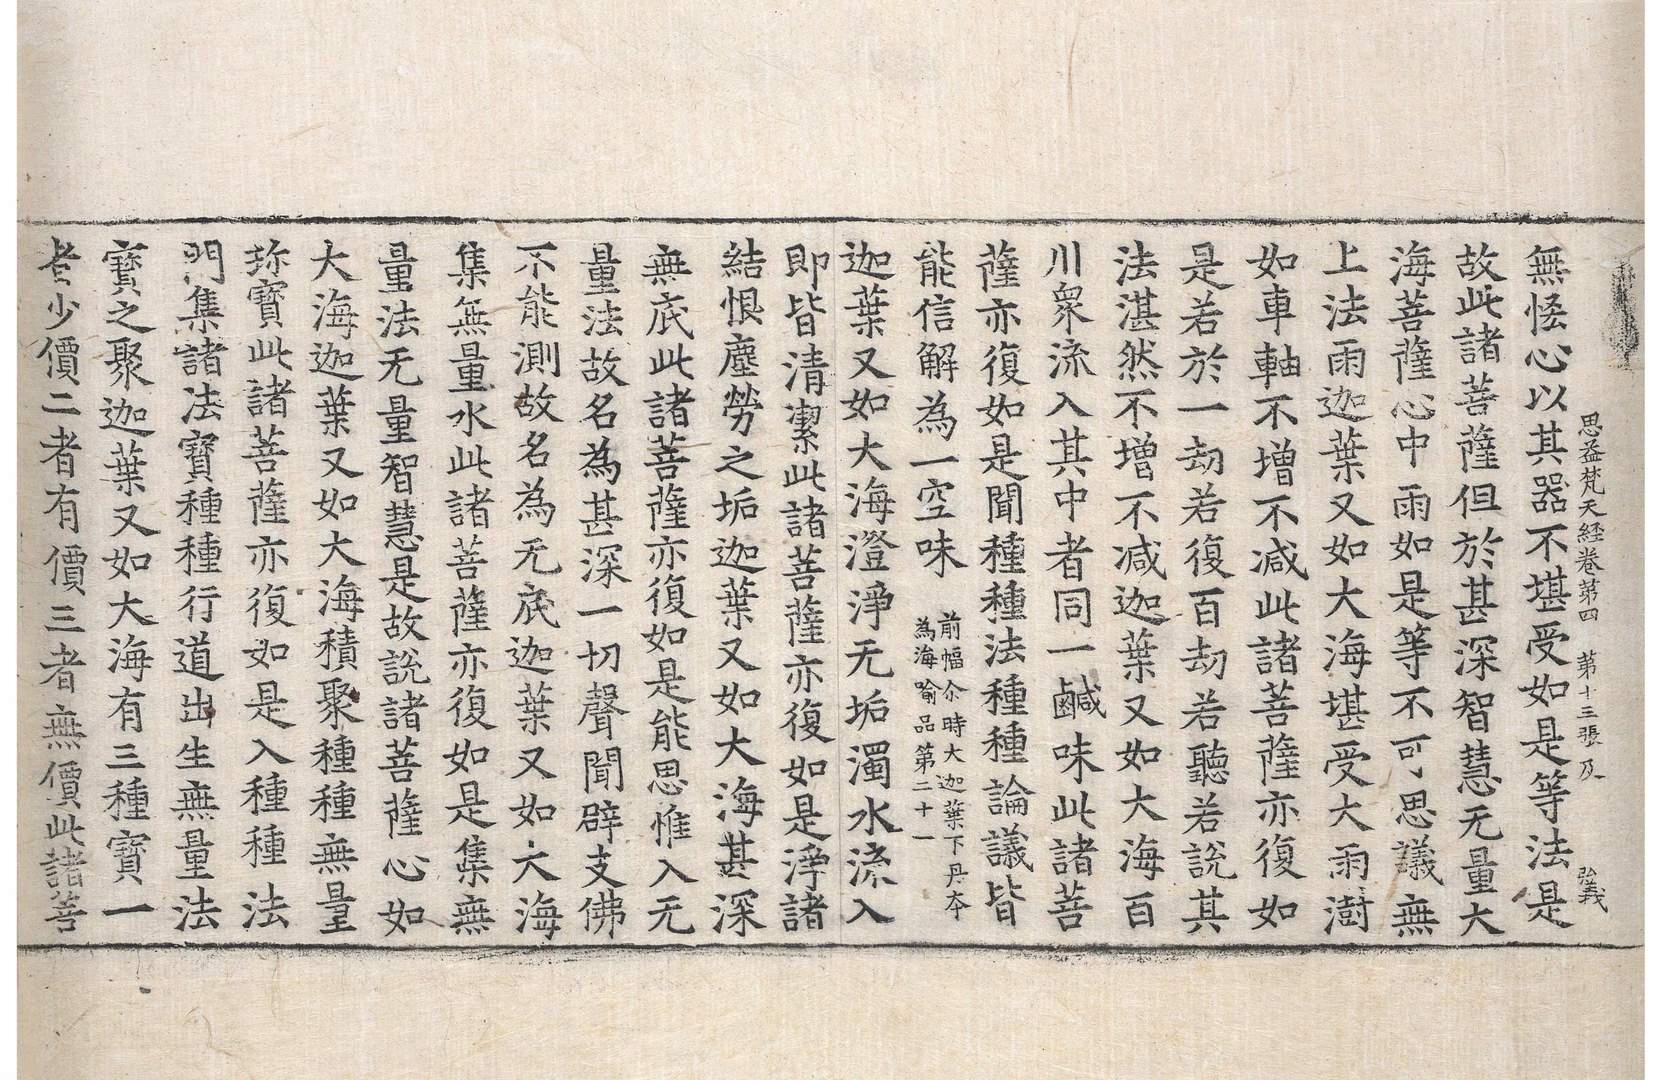 思益梵天經卷第四 第十三張 及 弘義
無悋心以其器不堪受如是等法是
故此諸菩薩但於甚深智慧无量大
海菩薩心中雨如是等不可思議無
上法雨迦葉又如大海堪受大雨澍
如車軸不增不减此諸菩薩亦復如
是若於一劫若復百劫若聽若說其
法湛然不增不减迦葉又如大海百
川衆流入其中者同一鹹味此諸菩
薩亦復如是聞種種法種種論議皆
能信解為一空味 前幅尒時大迦葉下丹夲
為海喻品第二十一
迦葉又如大海澄淨无垢濁水流入
即皆清潔此諸菩薩亦復如是淨諸
結恨塵勞之垢迦葉又如大海甚深
無底此諸菩薩亦復如是能思惟入无
量法故名為甚深一切聲聞辟支佛
不能測故名為无底迦葉又如大海
集無量水此諸菩薩亦復如是集無
量法无量智慧是故說諸菩薩心如
大海迦葉又如大海積聚種種無量
珎寶此諸菩薩亦復如是入種種法
門集諸法寶種種行道出生無量法
寶之聚迦葉又如大海有三種寶一
者少價二者有價三者無價此諸菩